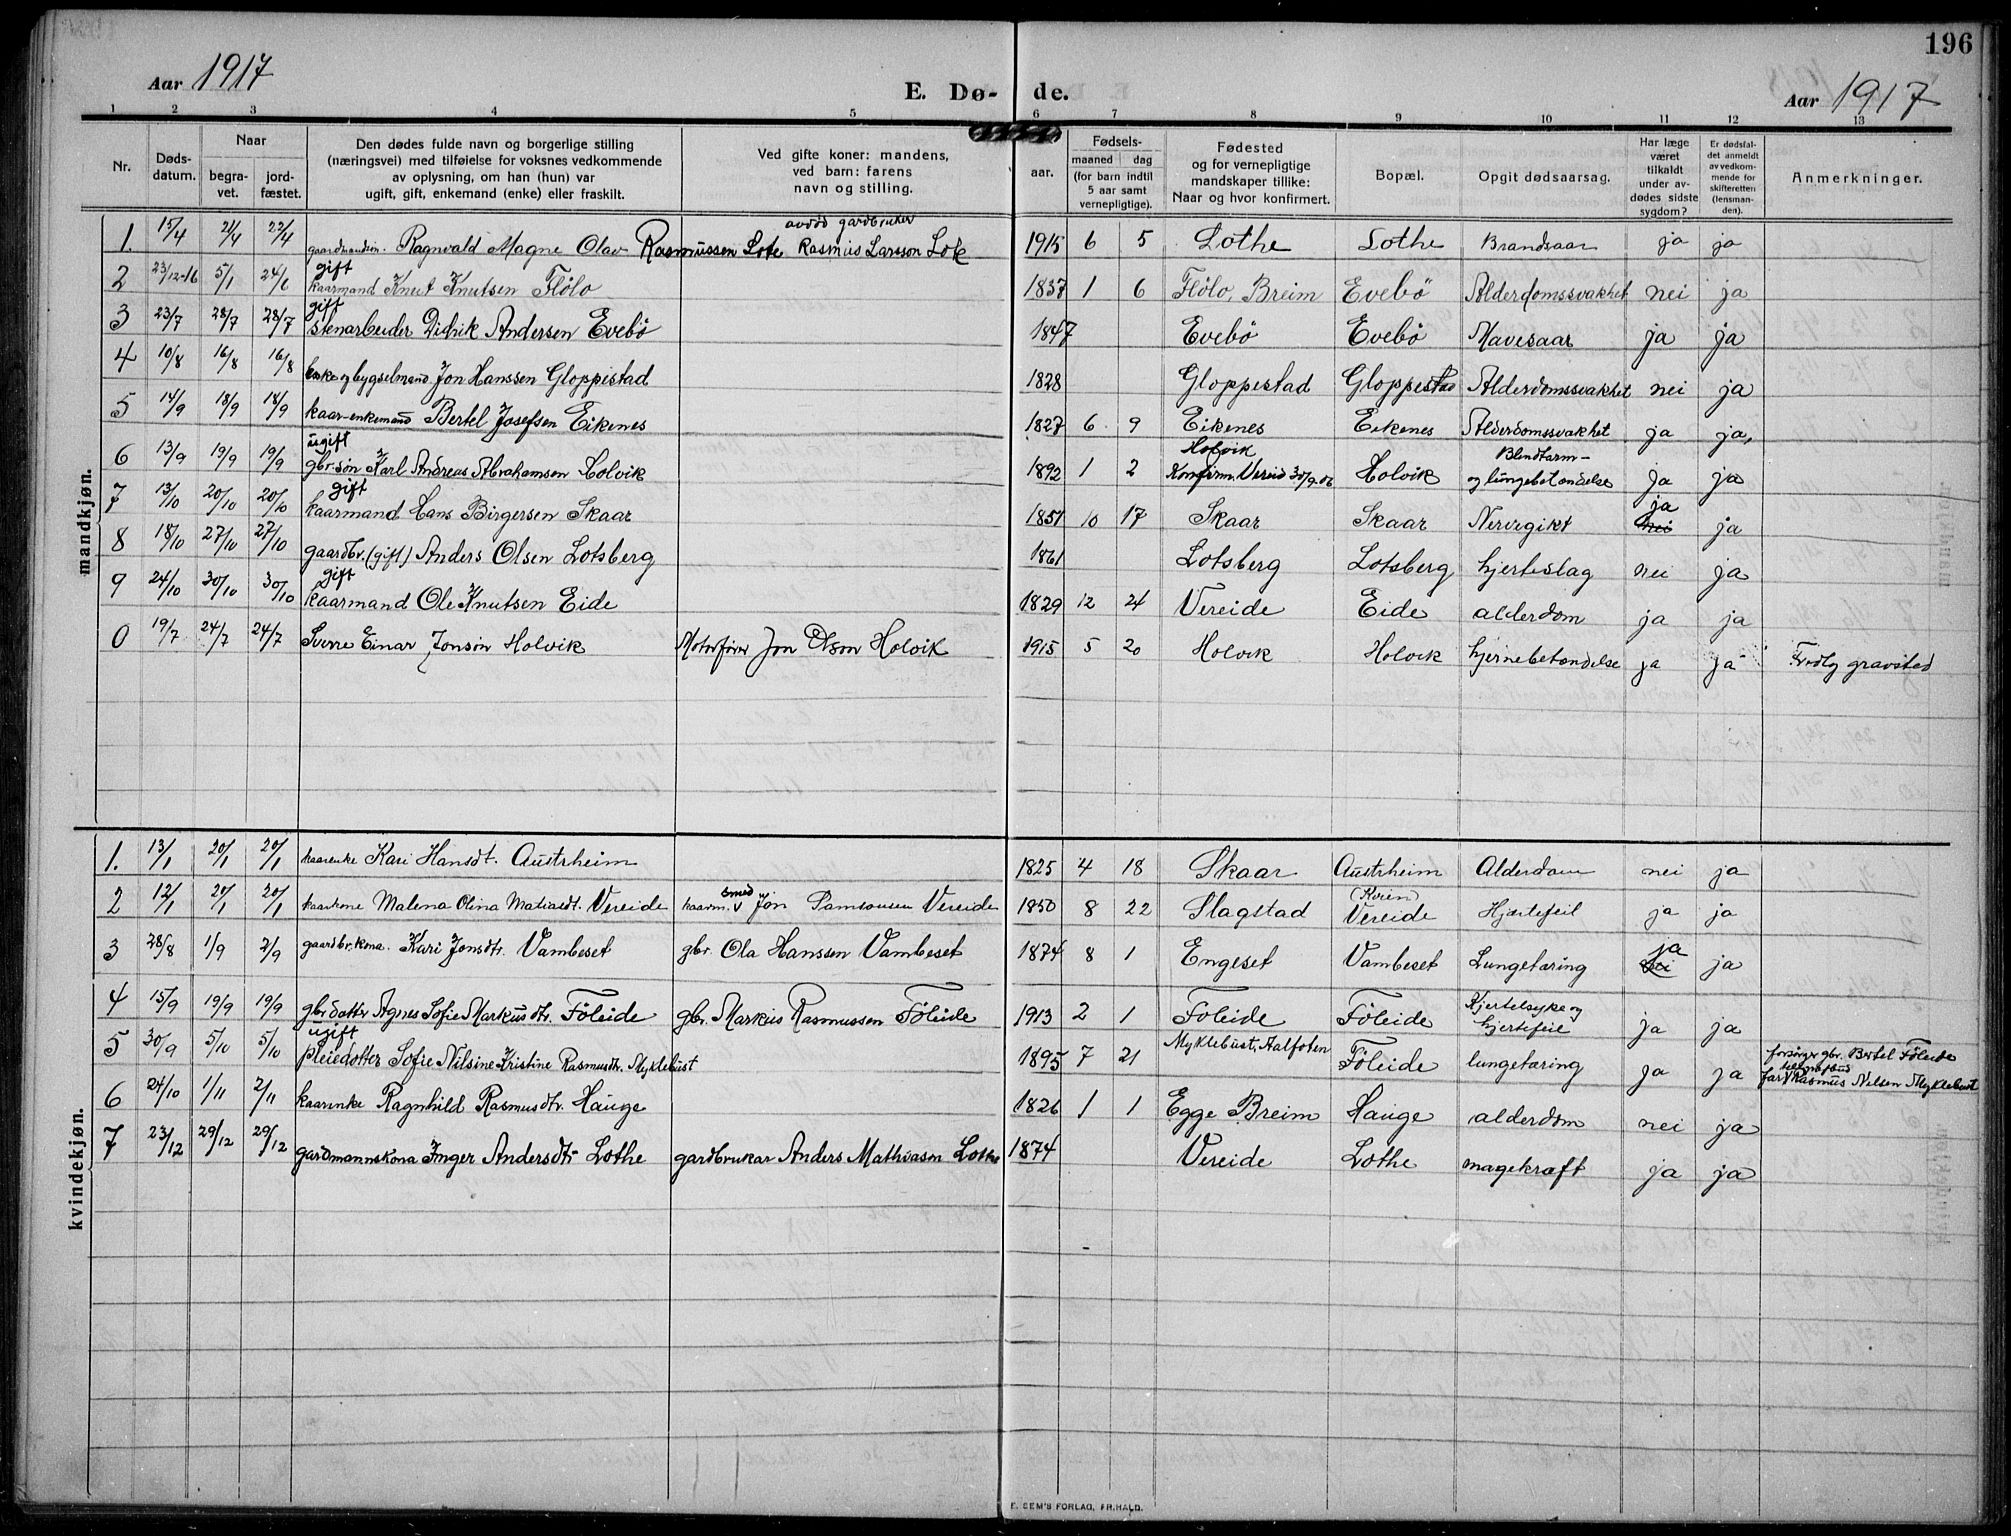 196
Aar 1917
E. Dø- de.
Aar 1917
1 2 3 4 5 6 7 8 9 10 11 12 13
Nr.
Døds-
datum.
Naar
begra-
vet.
jord-
fæstet.
Den dødes fulde navn og borgerlige stilling
(næringsvei) med tilføielse for voksnes vedkommende
av oplysning, om han (hun) var
ugift, gift, enkemand (enke) eller fraskilt.
Ved gifte koner: mandens,
ved barn: farens
navn og stilling.
aar.
Fødsels-
maaned dag
(for barn indtil
5 aar samt
vernepligtige).
Fødested
og for vernepligtige
mandskaper tillike:
Naar og hvor konfirmert.
Bopæl.
Opgit dødsaarsag.
Har læge
været
tilkaldt
under av-
dødes sidste
sygdom?
Er dødsfal-
det anmeldt
av vedkom-
mende for
skifteretten
(lensman-
den).
Anmerkninger.
mandkjøn.
avdød gardbruker
1. 15/4 21/4 22/4 Ragnvald Magne Olav Rasmussen Lote Rasmus Larsson Lote 1915 6 5 Lothe Lothe Brandsaar ja ja
gift
2 23/12-16 5/1 24/6 kaarmand Knut Knutsen Flølo 1837 1 6 Flølo, Breim Evebö Alderdomssvakhet nei ja
gift
3 23/7 28/7 28/7 stenarbeider Didrik Andersen Evebö 1847 Evebö Evebö Mavesaar ja ja
4 10/8 16/8 16/8 enke og bygselmand Jon Hanssen Gloppestad 1828 Gloppestad Gloppestad Alderdomssvakhet nei ja
5 14/9 18/9 18/9 kaar-enkemand Bertel Josefsen Eikenes 1827 6 9 Eikenes Eikenes Alderdomssvakhet ja ja,
ugift Holvik Blindtarm-
6 13/9 19/9 19/9 gbr.søn Karl Andreas Abrahamsen Holvik 1892 1 2 Konfirm. Vereid 30/9-06 Holvik og lungebetændelse ja ja
gift ja
7 13/10 20/10 20/10 kaarmand Hans Birgersen Skaar 1851 10 17 Skaar Skaar Nervegikt nei ja
8 18/10 27/10 27/10 gaardbr. (gift) Anders Olsen Lotsberg 1861 Lotsberg Lotsberg hjerteslag nei ja
gift
9 24/10 30/10 30/10 kaarmand Ole Knutsen Eide 1829 12 24 Vereide Eide alderdom ja ja
0 19/7 24/7 24/7 Sverre Einar Jonson Holvik Motorfører Jon Olson Holvik 1915 5 20 Holvik Holvik hjernebetændelse ja ja Fredlg gravsted
kvindekjøn.
1. 13/1 20/1 20/1 kaarenke Kari Hansdt. Austrheim 1825 4 18 Skaar Austrheim Alderdom nei ja
smed
2 12/1 20/1 20/1 kaarkone Malena Olina Matiasdt. Vereide kaarm. v Jon Samsonsen Vereide 1850 8 22 Slagstad Vereide Hjertefeil ja ja
ja
3 28/8 1/9 2/9 gaardbr.kona. Kari Jonsdtr. Vambeset gbr. Ola Hanssen Vambeset 1874 8 1 Engeset Vambeset Lungetæring nei ja
Kjertelsyke og
4 15/9 19/9 19/9 gbr datter Agnes Sofie Markusdtr. Föleide gbr. Markus Rasmussen Föleide 1913 2 1 Foleide Föleide hjertefeil ja ja
ugift Myklebust, Aalfoten forsörger gbr. Bertel Föleide
5 30/9 5/10 5/10 pleiedotter Sofie Nilsine Kristine Rasmusdtr. Myklebust 1895 7 21 Föleide lungetæring ja ja far Rasmus Nilsen Myklebust
6 24/10 1/11 2/11 kaarenke Ragnhild Rasmusdtr. Hauge 1826 1 1 Egge Breim Hauge alderdom nei ja
7 23/12 29/12 29/12 gardmannskona Inger Andersdtr Lothe gardbrukar Anders Mathiasen Lothe 1874 Vereide Lothe magekræft ja ja
E. SEM'S FORLAG, FR.HALD.